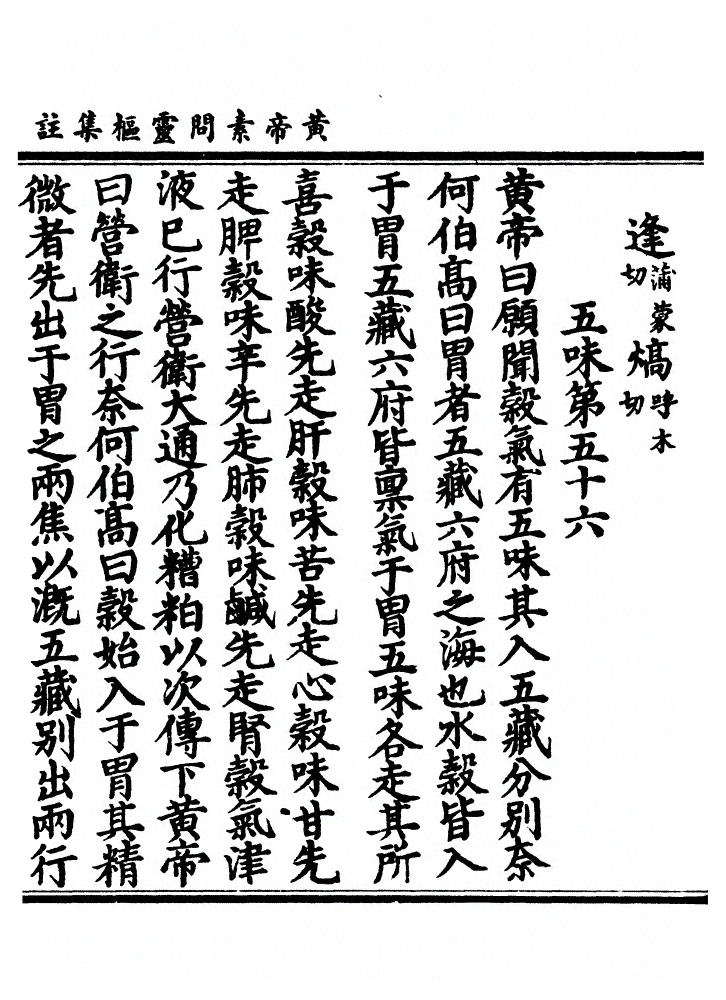 黄帝素問靈樞集註
逢蒲蒙切 熇嘑木切
五味第五十六
黄帝曰願聞穀氣有五味其入五藏分别奈
何伯髙曰胃者五藏六府之海也水穀皆入
于胃五藏六府皆禀氣于胃五味各走其所
喜穀味酸先走肝穀味苦先走心穀味甘先
走脾穀味辛先走肺穀味鹹先走腎穀氣津
液已行營衛大通乃化糟粕以次傳下黄帝
曰營衛之行奈何伯髙曰穀始入于胃其精
微者先出于胃之兩焦以溉五藏别出兩行